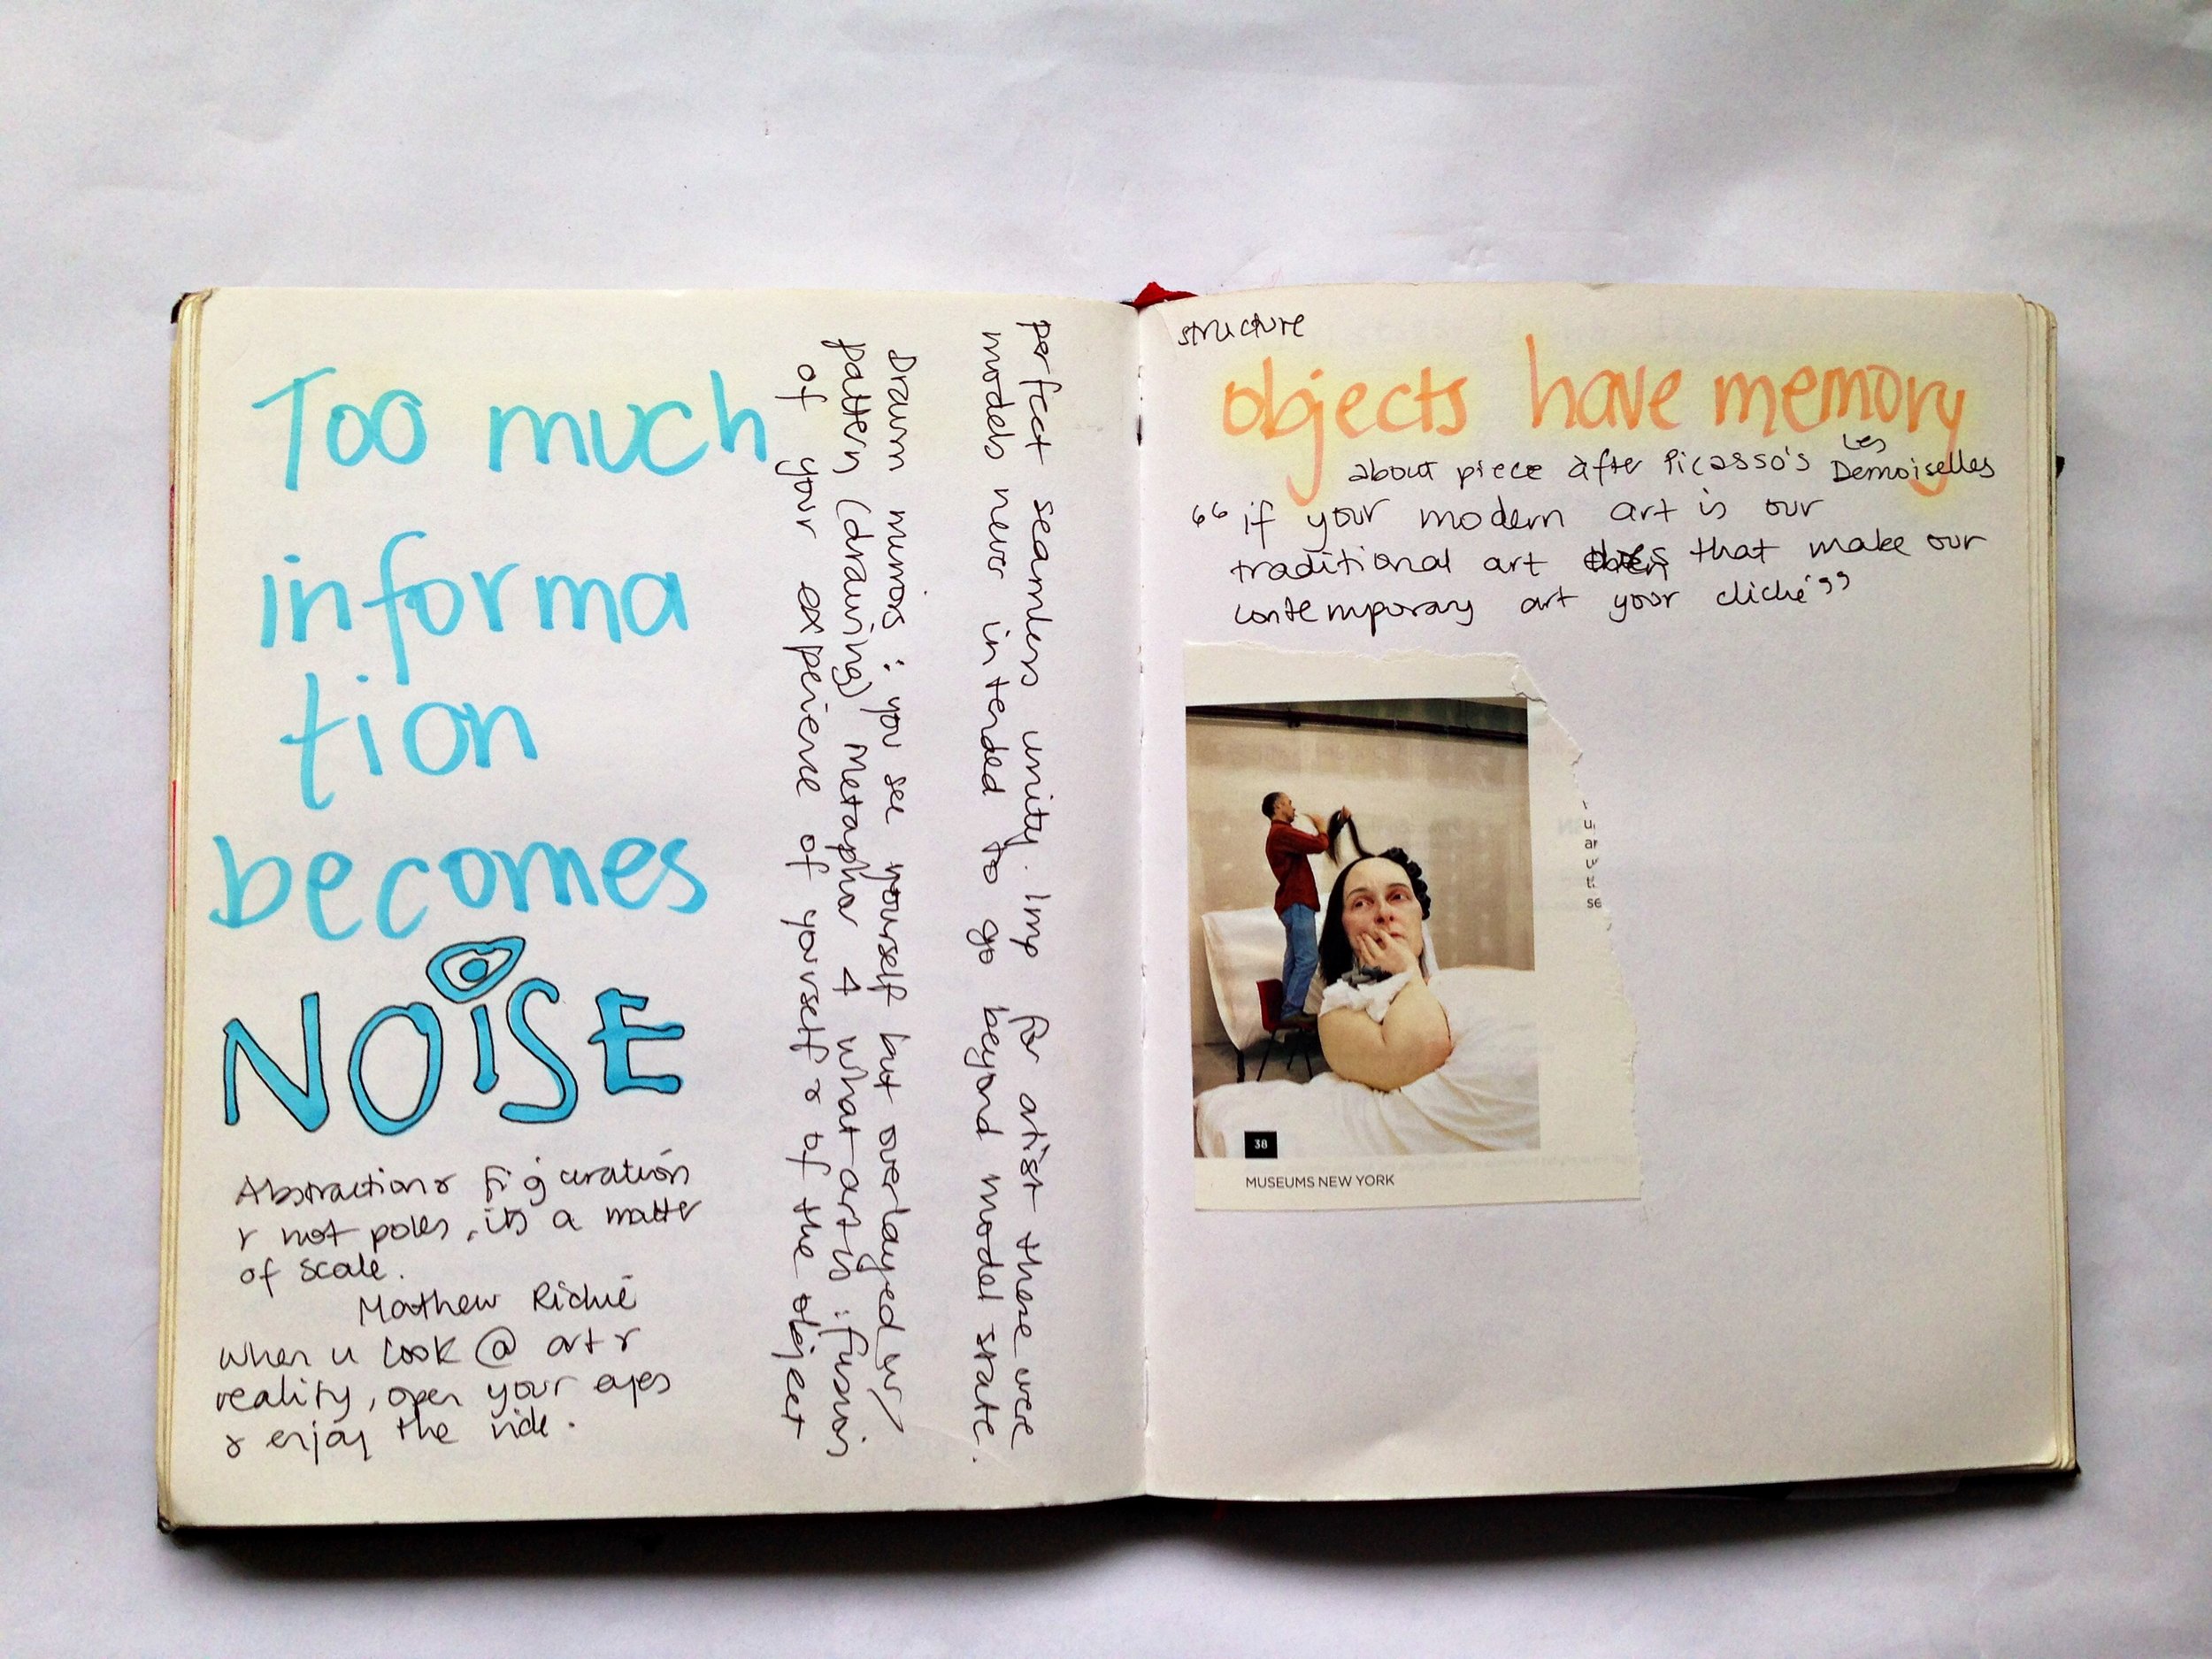 Too much
informa
tion
becomes
NOISE
Abstraction & figuration
r not poles, its a matter
of scale.
Mathew Richie
when u look @ art &
reality, open your eyes
& enjoy the ride.
perfect seamless unity. Imp for artist these were
models never intended to go beyond model state.
Drawn mirrors : you see yourself but overlayed w/
pattern (drawing) Metaphor 4 what art is : fusion
of your experience of yourself & of the object
structure
objects have memory
about piece after Picasso's Les Demoiselles
“if your modern art is our
traditional art does that make our
contemporary art your cliché”
u
ar
u
t
se
38
MUSEUMS NEW YORK